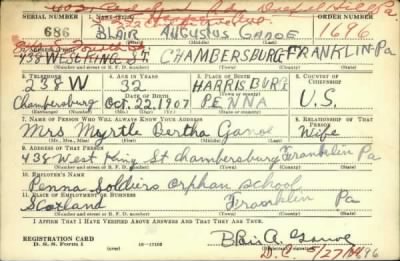 Drexel Hill, Pa
SERIAL NUMBER ORDER NUMBER
686 BLAIR AUGUSTUS GANOE 1696
438 WEST KING ST. CHAMBERSBURG FRANKLIN Pa
3. TELEPHONE 4. AGE IN YEARS 5. PLACE OF BIRTH 6. COUNTRY OF CITIZENSHIP
238 W 32 HARRISBURG
DATE OF BIRTH
Chambersburg Oct. 22, 1907 PENNA U.S.
7. NAME OF PERSON WHO WILL ALWAYS KNOW YOUR ADDRESS 8. RELATIONSHIP OF THAT PERSON
Mrs Myrtle Bertha Ganoe Wife
9. ADDRESS OF THAT PERSON
438 West King St Chambersburg Franklin Pa
10. EMPLOYER'S NAME
Penna Soldiers Orphan School
11. PLACE OF EMPLOYMENT OR BUSINESS
Scotland Franklin Pa
I AFFIRM THAT I HAVE VERIFIED ABOVE ANSWERS AND THAT THEY ARE TRUE.
REGISTRATION CARD
D. S. S. Form 1 Blair A Ganoe